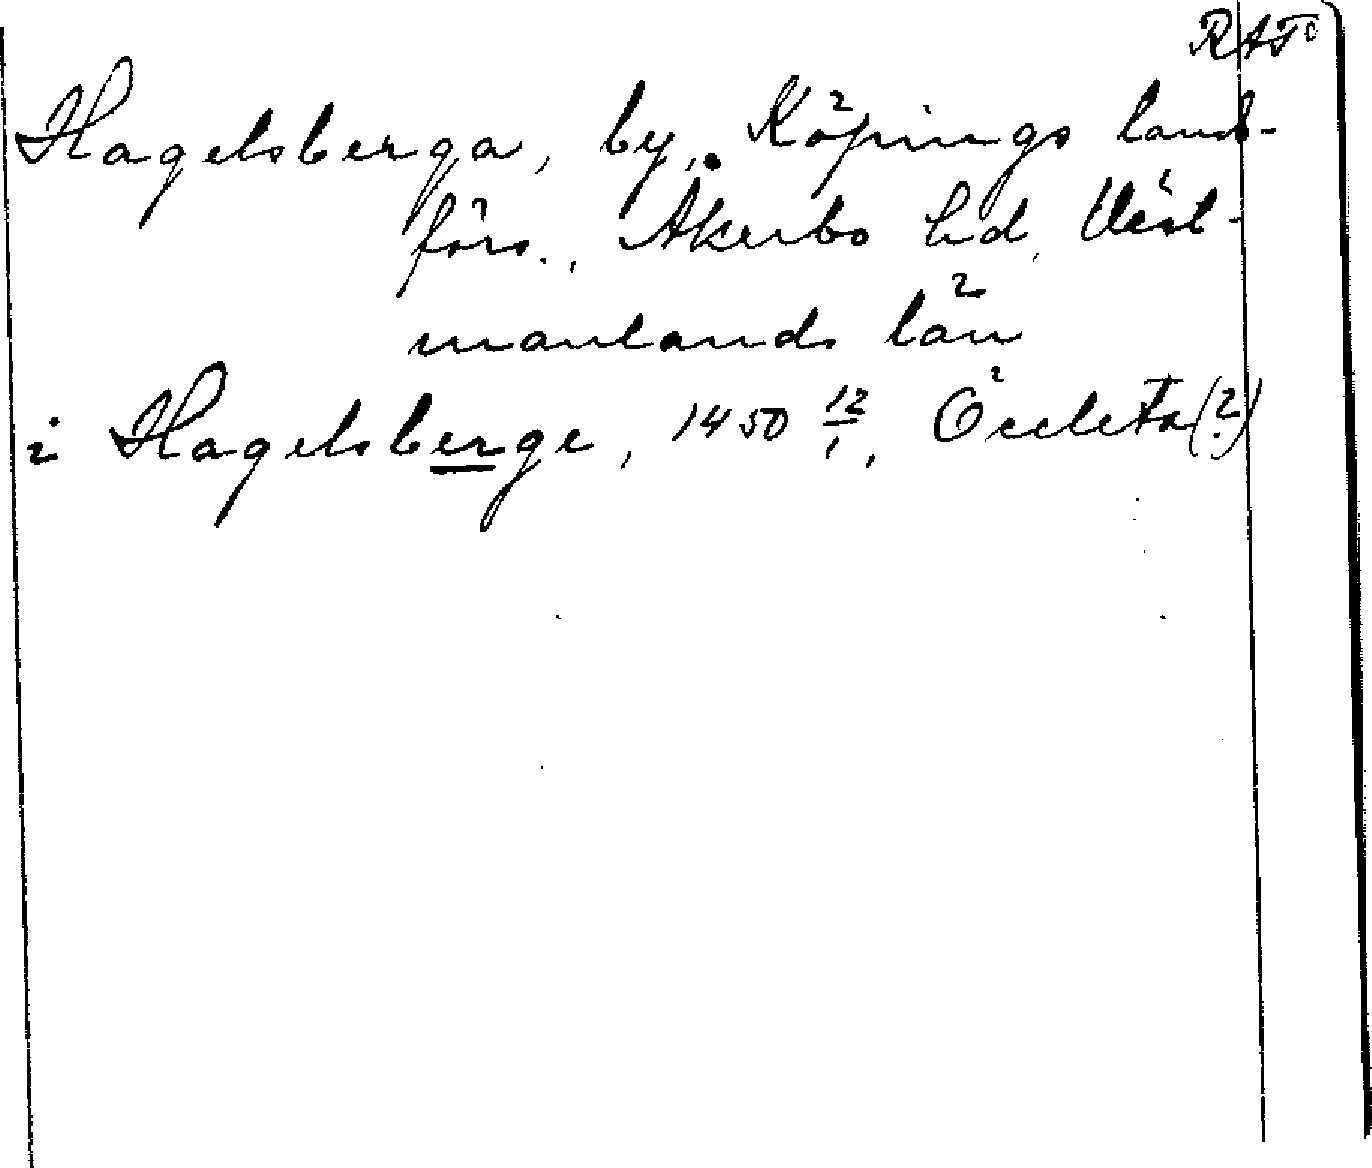 RAP⁰
Hagelsberga, by, Köpings lands-
förs., Åkerbo hd, Väst-
manlands län
i Hagelsberge, 1450 12/1, Öcelcta(?)